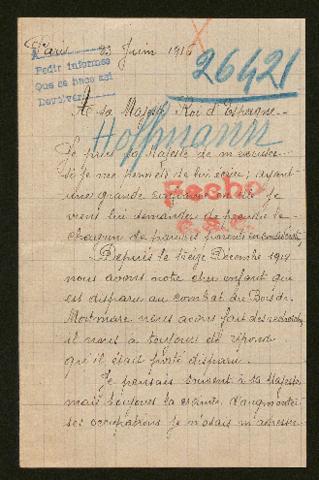 Paris 23 Juin 1916
Pedir informes
Que se hace así
Devolver
26421
A sa Majesté Roi d'Espagne
Hoffmann
Je prie sa Majesté de m'excuser
si je me permets de lui écrire ; ayant
une grande confiance en elle je
viens lui demander de prendre le
chagrin de pauvres parents en considération
Fecho
Depuis le treize Décembre 1914
nous avons notre cher enfant qui
est disparu au combat du Bois de
Mortmare nous avons fait des recherches
il nous a toujours été répond
qu'il était porté disparu.
Je pensais souvent à sa Majesté
mais toujours la crainte d'augmenter
ses occupations je n'osais m'adresser